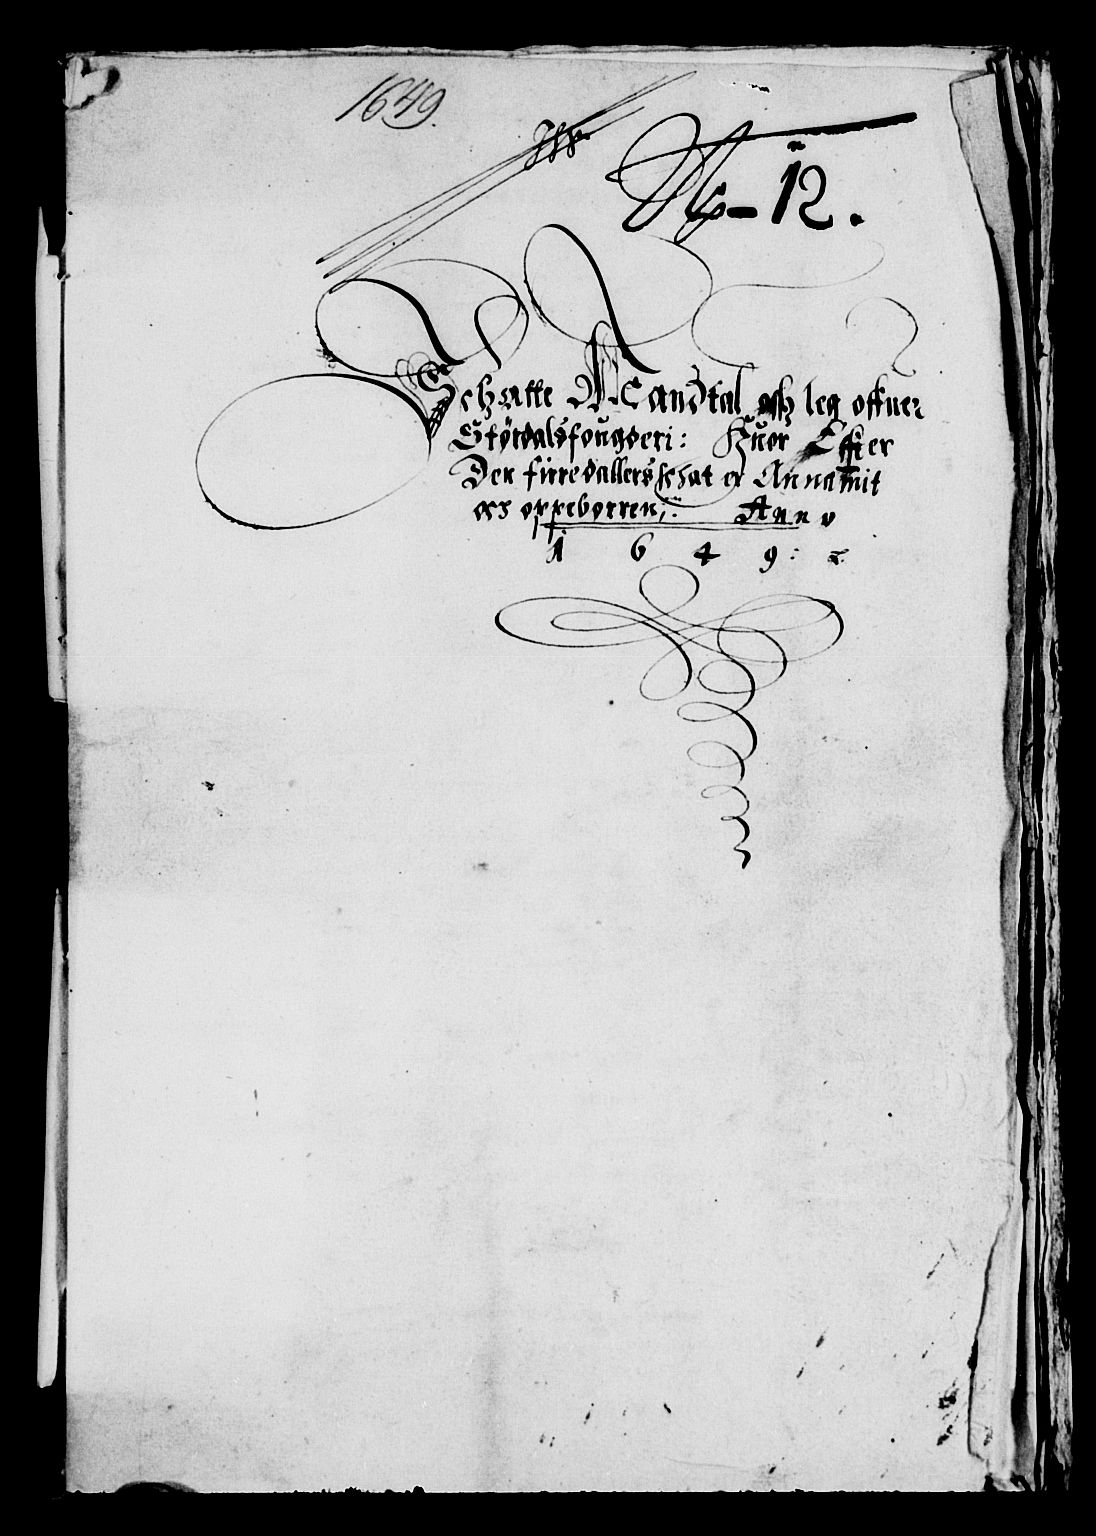 1649.
No - 12.
Schatte Mandtal och leg offuer
Stördalsfougderi: Huor Effter
Den firredallers schat er Annamit
och oppeborren: Anno
1 6 4 9 :